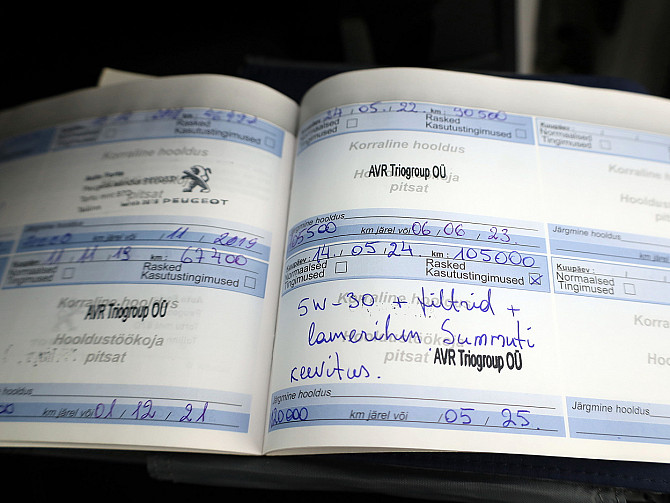 67400
11 . 11 . 19 km :
Rasked
Kasutustingimused
Korraline hooldus
PEUGEOT
km järel või 11 , 2019
Rasked
Kasutustingimused
Korraline hooldus
AVR Triogroup OÜ
Hooldustöökoja
pitsat
Järgmine hooldus
km järel või 01 , 12 , 21
24 . 05 . 22 km : 90500
Normaalsed
Tingimused
Rasked
Kasutustingimused
Korraline hooldus
AVR Triogroup OÜ
pitsat
km järel või 06, 06, 23
Kuupäev : 14 . 05 . 24 km : 105000
Normaalsed
Tingimused
Rasked
Kasutustingimused
5W-30 + filtrid +
Summuti
AVR Triogroup OÜ
keevitus.
Järgmine hooldus
km järel või 05 , 25
Kuupäev :
Normaalsed
Tingimused
Korraline
Hooldustöö
pitsat
Järgmine hooldus
Kuupäev :
Normaalsed
Tingimused
Järgmine hooldus